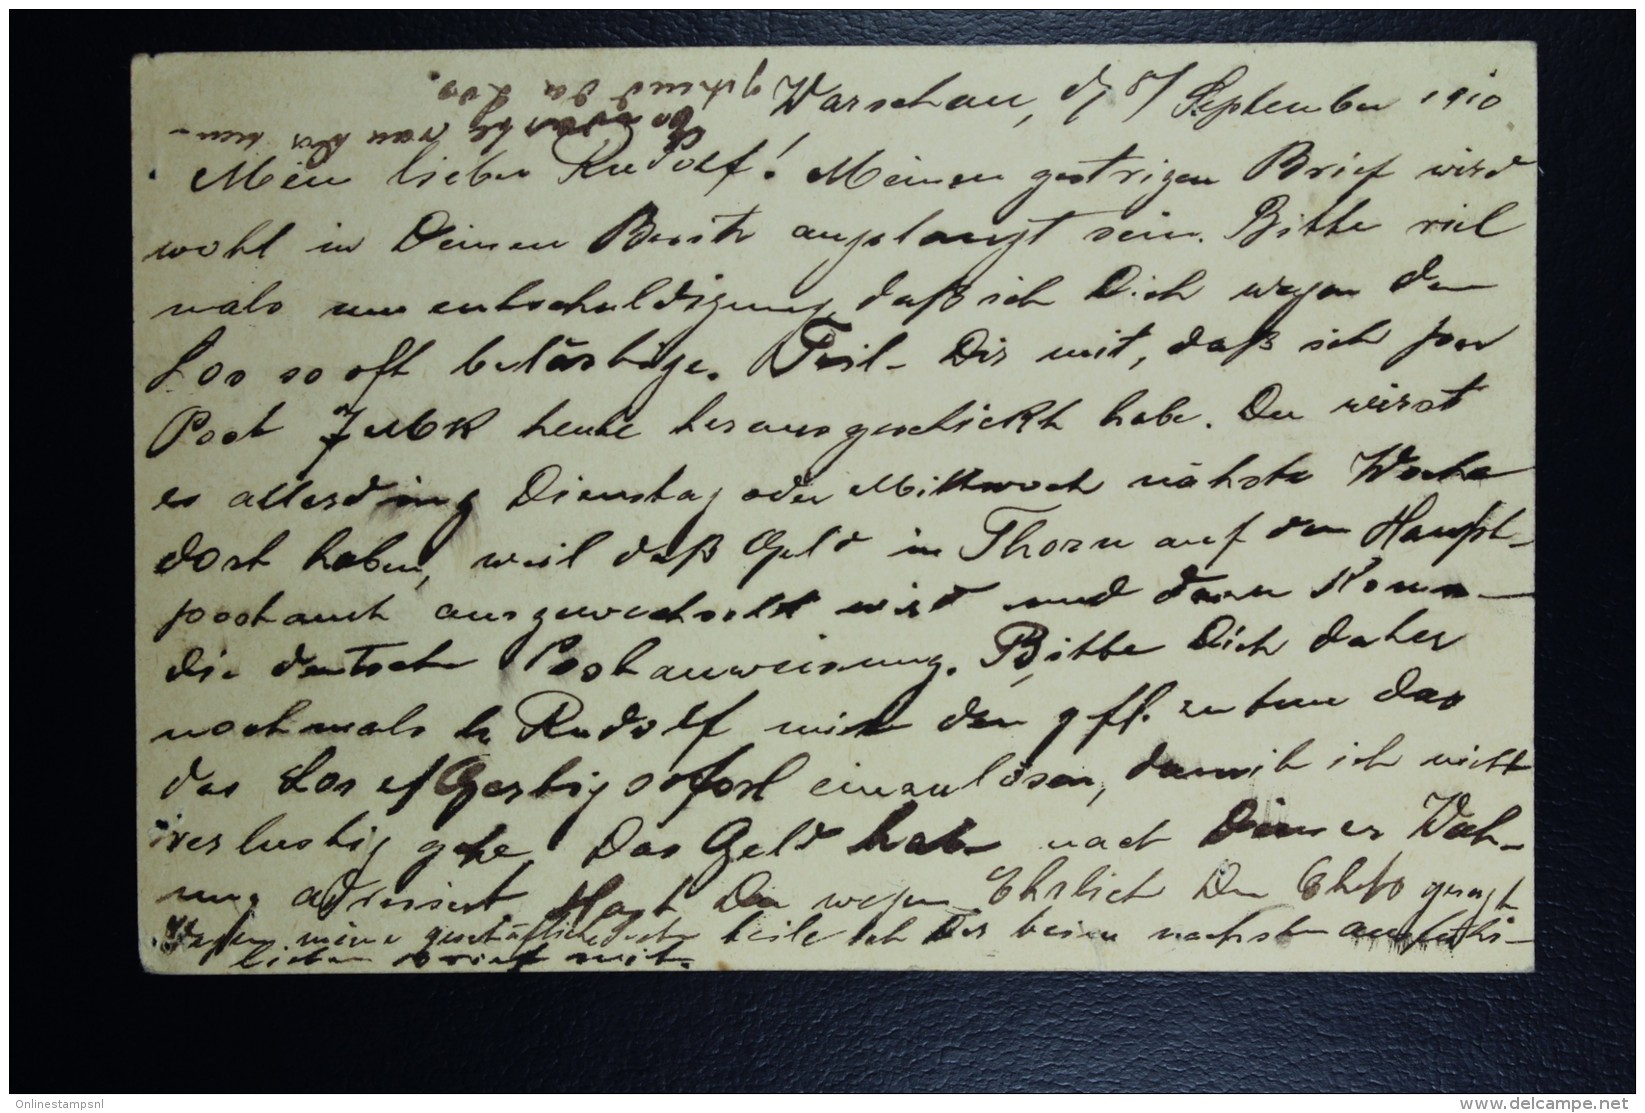 Warschau, d/ 8/ September 1910
Mein lieber Rudolf! Meinen gestrigen Brief wird
wohl in Deinen Besitz angelangt sein. Bitte viel
mals um entschuldigung, daß ich Dich wegen den
Los so oft belästige. Teil- Dir mit, daß ich per
Post heute herausgeschickt habe. Du wirst
es allerding Dienstag oder Mittwoch nähste Woche
dort haben, weil daß Geld in Thorn auf dem Haupt-
postamt ausgewechselt wird und dann Komm-
die deutsche Postanweisung. Bitte Dich daher
nochmals l. Rudolf mir den gfl. zu tun das
das Los sofort einzulösen, damit ich nicht
verlustig gehe. Das Geld habe nach Deiner Woh-
nung adressiert Hast Du wegen Ehrlich Den gesagt
Wegen meine geschäftliche teile ich Dir beim nächsten ausführ-
lichen Brief mit.
Onlinestampsnl
www.delcampe.net